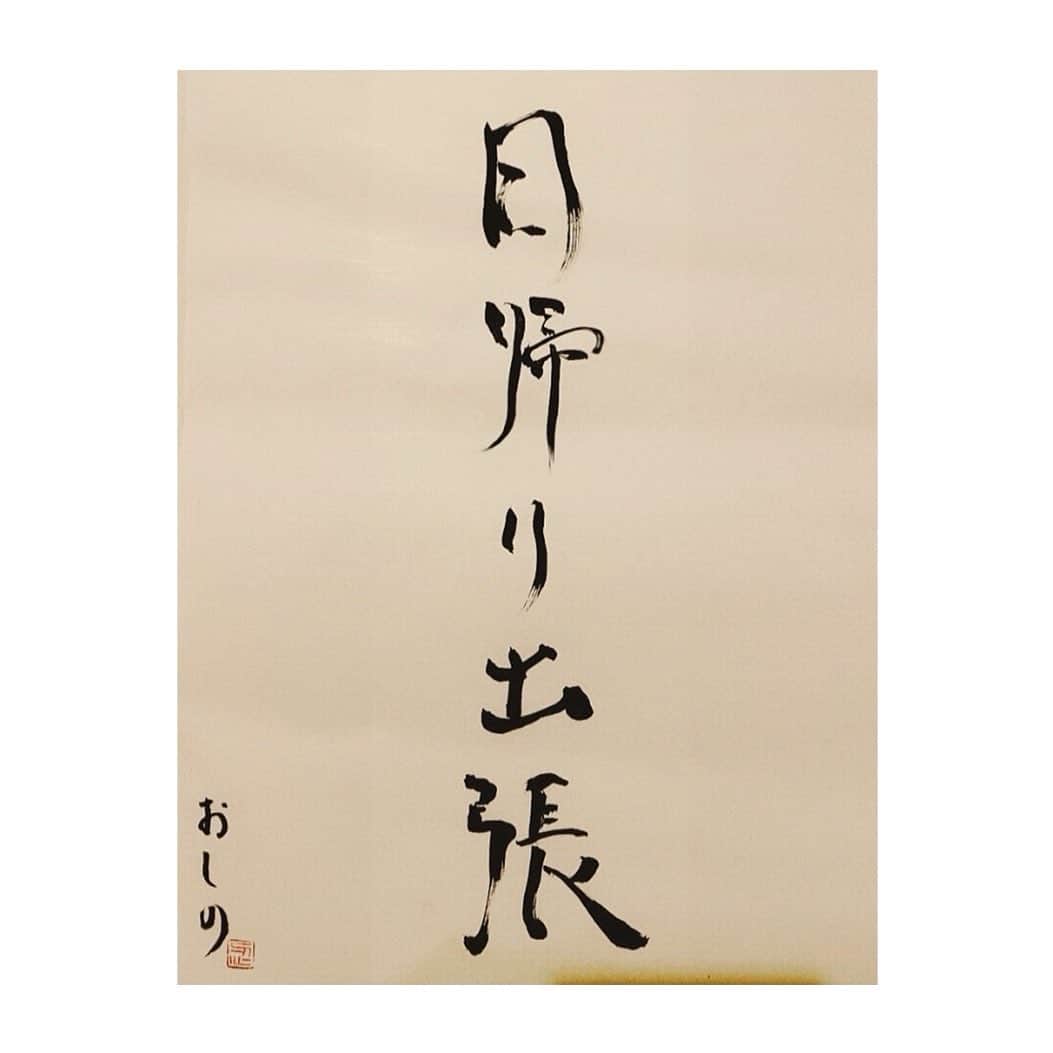 日帰り出張
おしの